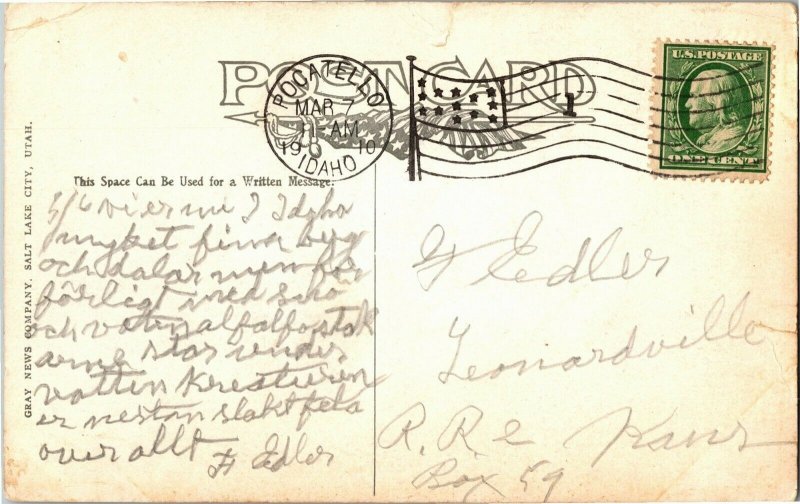 POST CARD
POCATELLO
MAR 7
11-AM
1910
IDAHO
1
U.S. POSTAGE
ONE CENT
This Space Can Be Used for a Written Message.
GRAY NEWS COMPANY, SALT LAKE CITY, UTAH.
5/6 vi I Idaho
myket fina berg
och dalar men för
färligt med snö
och vatten alfalfa stak
arne star under
vatten kreaturen
er nestan slakt feta
over allt
F Edler
F Edler
Leonardville
R. R 2 Kans
Box 59